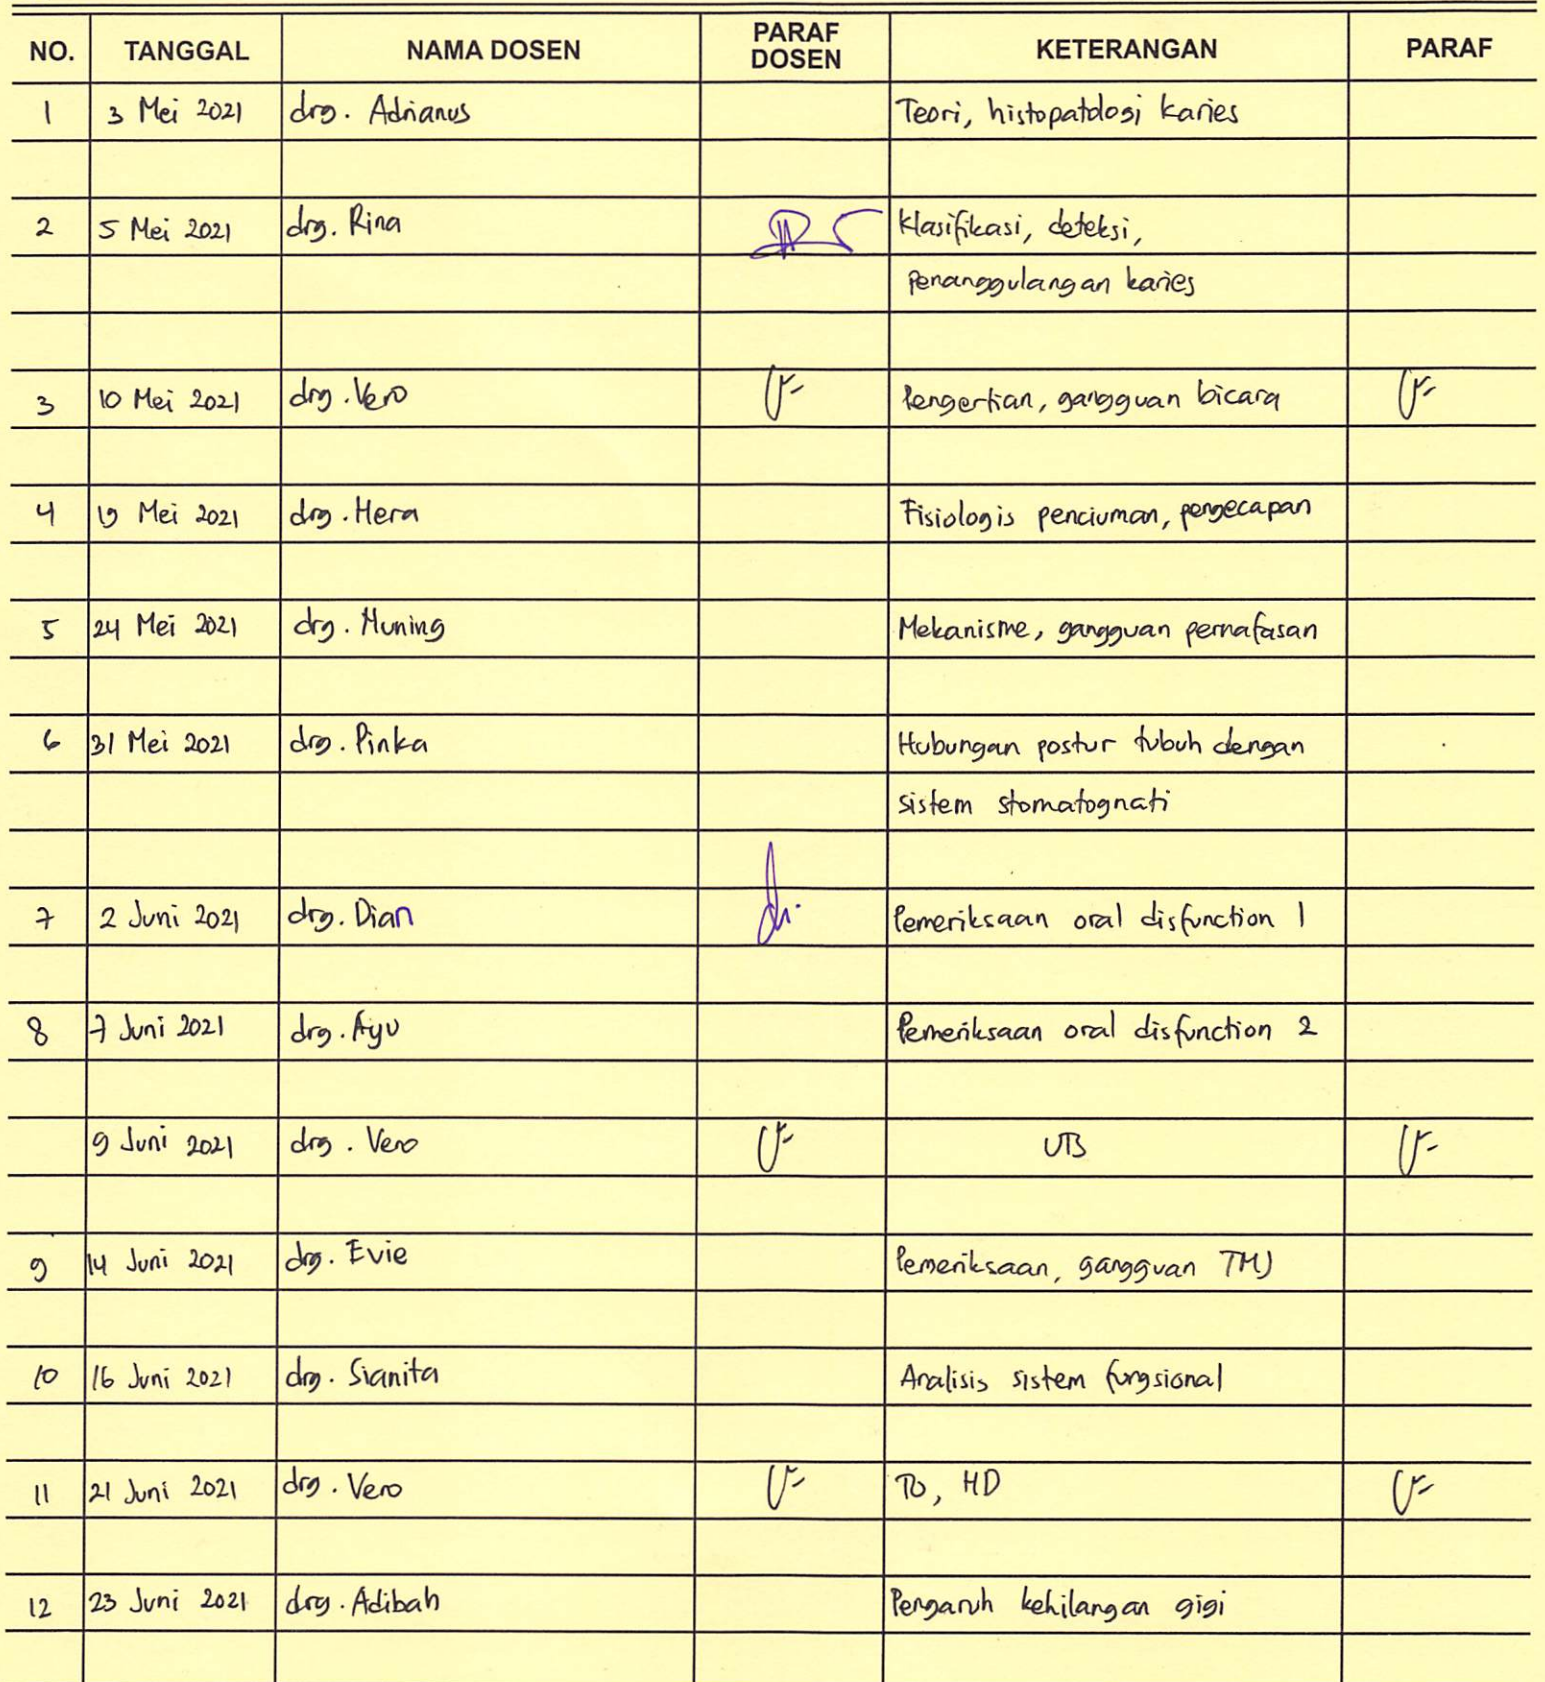 NO. TANGGAL NAMA DOSEN PARAF DOSEN KETERANGAN PARAF
1 3 Mei 2021 drg. Adrianus Teori, histopatologi karies
2 5 Mei 2021 drg. Rina Klasifikasi, deteksi,
penanggulangan karies
3 10 Mei 2021 drg. Vero Pengertian, gangguan bicara
4 19 Mei 2021 drg. Hera Fisiologis penciuman, pengecapan
5 24 Mei 2021 drg. Nuning Mekanisme, gangguan pernafasan
6 31 Mei 2021 drg. Pinka Hubungan postur tubuh dengan
sistem stomatognati
7 2 Juni 2021 drg. Dian Pemeriksaan oral disfunction 1
8 7 Juni 2021 drg. Ayu Pemeriksaan oral disfunction 2
9 Juni 2021 drg. Vero UTB
9 14 Juni 2021 drg. Evie Pemeriksaan, gangguan TMJ
10 16 Juni 2021 drg. Sianita Analisis sistem fungsional
11 21 Juni 2021 drg. Vero TO, HD
12 23 Juni 2021 drg. Adibah Pengaruh kehilangan gigi